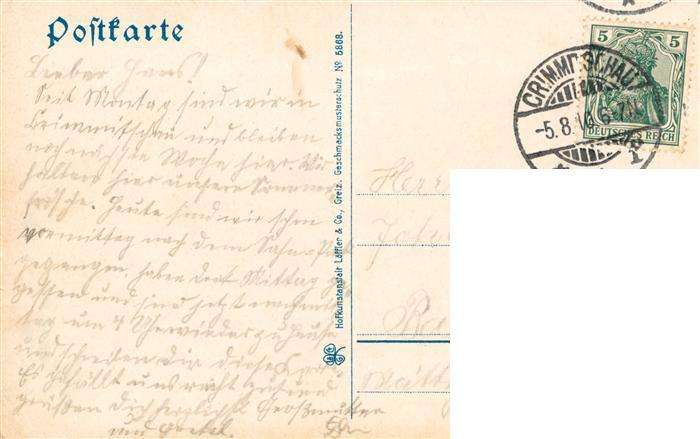 Postkarte
Lieber Hans!
Seit Montag sind wir in
Crimmitschau und bleiben
noch nächste Woche hier. Wir
halten hier unsere Sommer
frische. Heute sind wir schon
vormittag nach dem Sahn-
gegangen, haben dort Mittag ge
gessen und sind jetzt nachmit
tag um 4 Uhr wieder zu Hause
und senden dir diese Karte.
Es gefällt uns recht gut und
grüßen Dich herzlichst Großmutter
und Gretel.
Hofkunstanstalt Löffler & Co., Greiz. Geschmacksmusterschutz Nº 5868.
Herrn
CRIMMITSCHAU
-5.8.
1
5 5
DEUTSCHES REICH